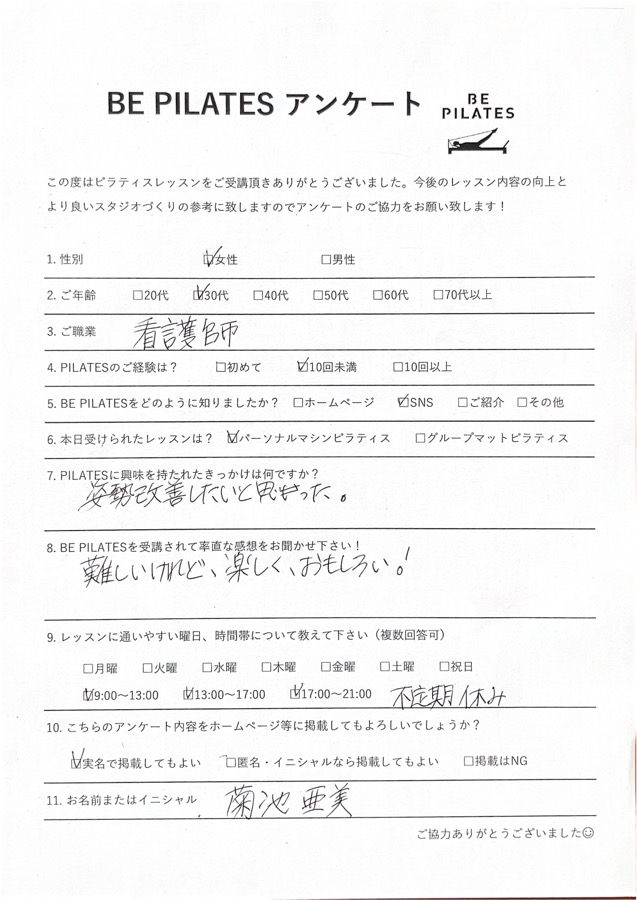 BE PILATES アンケート
BE
PILATES
この度はピラティスレッスンをご受講頂きありがとうございました。今後のレッスン内容の向上と
より良いスタジオづくりの参考に致しますのでアンケートのご協力をお願い致します！
1. 性別 ☑女性 □男性
2. ご年齢 □20代 ☑30代 □40代 □50代 □60代 □70代以上
3. ご職業 看護師
4. PILATESのご経験は？ □初めて ☑10回未満 □10回以上
5. BE PILATESをどのように知りましたか？ □ホームページ ☑SNS □ご紹介 □その他
6. 本日受けられたレッスンは？ ☑パーソナルマシンピラティス □グループマットピラティス
7. PILATESに興味を持たれたきっかけは何ですか？
姿勢改善したいと思った。
8. BE PILATESを受講されて率直な感想をお聞かせ下さい！
難しいけれど、楽しく、おもしろい！
9. レッスンに通いやすい曜日、時間帯について教えて下さい（複数回答可）
□月曜 □火曜 □水曜 □木曜 □金曜 □土曜 □祝日
☑9:00〜13:00 ☑13:00〜17:00 ☑17:00〜21:00 不定期休み
10. こちらのアンケート内容をホームページ等に掲載してもよろしいでしょうか？
☑実名で掲載してもよい □匿名・イニシャルなら掲載してもよい □掲載はNG
11. お名前またはイニシャル 菊池 亜美
ご協力ありがとうございました☺